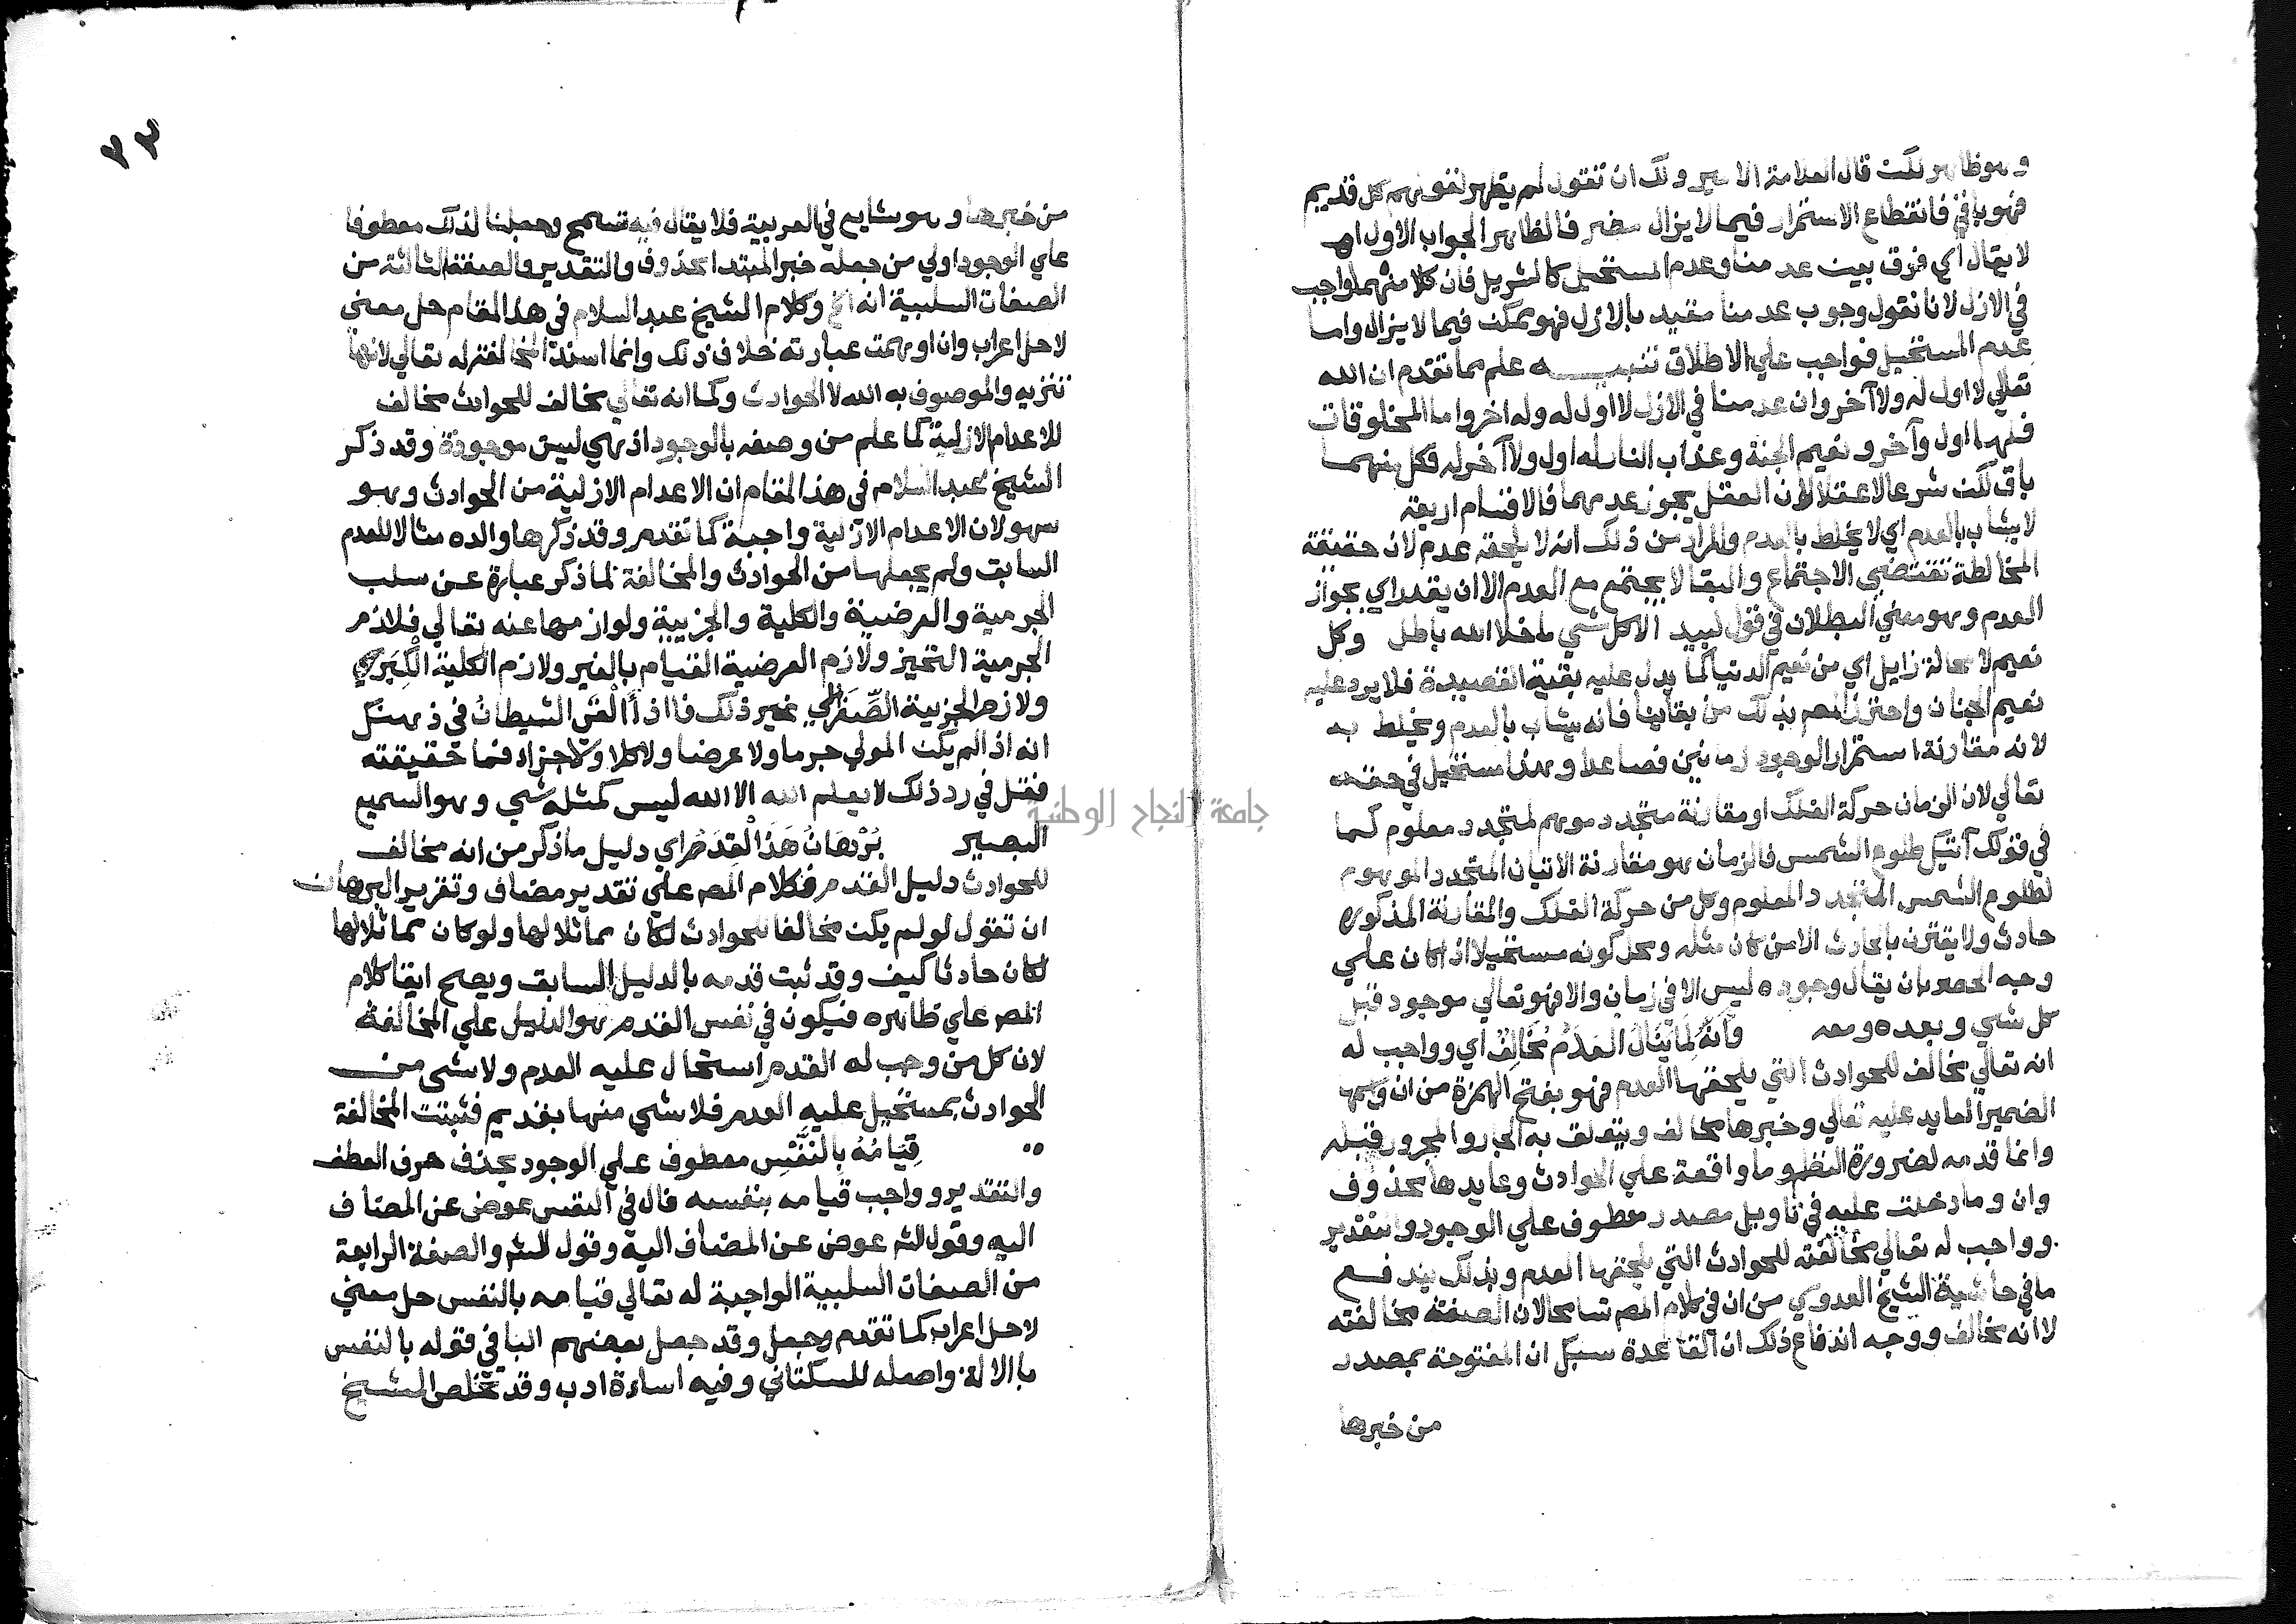 وهو ظاهر لكن قال العلامة الامير ولك ان تقول لم يظهر لقولهم كل قديم
فهو باق فانقطاع الاستمرار فيما لا يزال مضر فالظاهر الجواب الاول اهـ
لا يقال اي فرق بين عدمنا وعدم المستحيل كالشريك فان كلا منهما واجب
في الازل لانا نقول وجوب عدمنا مقيد بالازل فهو ممكن فيما لا يزال واما
عدم المستحيل فواجب علي الاطلاق تنبيه علم مما تقدم ان الله
تعالي لا اول له ولا آخر وان عدمنا في الازل لا اول له وله اخر واما المخلوقات
فلها اول وآخر ونعيم الجنة وعذاب النار له اول ولا آخر له فكل منهما
باق لكن شرعا لا عقلا لان العقل يجوز عدمهما فالاقسام اربعة
لا يشاب بالعدم اي لا يخلط بالعدم والمراد من ذلك انه لا يلحقه عدم لان حقيقة
المخالطة تقتضي الاجتماع والبقا لا يجتمع مع العدم الا ان يقدر اي بجواز
العدم وهو معني البطلان في قول لبيد الا كل شي ما خلا الله باطل وكل
نعيم لا محالة زايل اي من نعيم الدنيا كما يدل عليه بقية القصيدة فلا يرد عليه
نعيم الجنان واحترز المص بذلك من بقاينا فانه يشاب بالعدم ويخلط به
لانه مقارنة استمرار الوجود زمانين فصاعدا وهذا مستحيل في حقه
تعالي لان الزمان حركة الفلك او مقارنة متجدد موهوم لمتجدد معلوم كما
في قولك آتيك طلوع الشمس فالزمان هو مقارنة الاتيان المتجدد الموهوم
لطلوع الشمس المتجدد المعلوم وكل من حركة الفلك والمقارنة المذكوره
حادث ولا يقترن بالحادث الا من كان مثله ومحل كونه مستحيلا اذا كان علي
وجه الحصر بان يقال وجوده ليس الا في زمان والا فهو تعالي موجود قبل
كل شي وبعده ومعه وَاَنَّهُ لِمَا يَنَالُ العَدَمُ مُخَالِفُ اي وواجب له
انه تعالي مخالف للحوادث التي يلحقها العدم فهو بفتح الهمزة من ان واسمها
الضمير العايد عليه تعالي وخبرها مخالف ويتعلق به الجار والمجرور قبله
وانما قدمه لضرورة النظم وما واقعة علي الحوادث وعايدها محذوف
وان وما دخلت عليه في تاويل مصدر معطوف علي الوجود والتقدير
وواجب له تعالي مخالفته للحوادث التي يلحقها العدم وبذلك يندفع
ما في حاشية الشيخ العدوي من ان في كلام المص تسامحا لان الصفة مخالفته
لا انه مخالف ووجه اندفاع ذلك ان القاعدة سبك ان المفتوحة بمصدر
من خبرها
٣٣
من خبرها وهو شايع في العربية فلا يقال فيه تسمح وجعلنا لذلك معطوفا
علي الوجود اولي من جعله خبر المبتدا محذوف والتقدير والصفة الثالثة من
الصفات السلبية انه الخ وكلام الشيخ عبد السلام في هذا المقام حل معني
لا حل اعراب وان اوهمت عبارته خلاف ذلك وانما اسند المخالفة له تعالي لانها
تنزيه والموصوف به الله لا الحوادث وكما انه تعالي مخالف للحوادث مخالف
للاعدام الازلية كما علم من وصفه بالوجود اذ هي ليس موجودة وقد ذكر
الشيخ عبد السلام في هذا المقام ان الاعدام الازلية من الحوادث وهو
سهو لان الاعدام الازلية واجبة كما تقدم وقد ذكرها والده مثالا للعدم
السابق ولم يجعلها من الحوادث والمخالفة لما ذكر عبارة عن سلب
الجرمية والعرضية والكلية والجزيية ولوازمها عنه تعالي فلازم
الجرمية التحيز ولازم العرضية القيام بالغير ولازم الكلية الْكِبَر الي
ولازم الجزيية الصِّغَر الي غير ذلك فاذا أَلْقَي الشيطانُ في ذهنك
انه اذا لم يكن المولي جرما ولا عرضا ولا كلا ولا جزاء فما حقيقته
فقل في رد ذلك لا يعلم الله الا الله ليس كمثله شي وهو السميع
البصير بُرْهَانُ هَذَا الْقِدَمُ اي دليل ما ذكر من انه مخالف
للحوادث دليل القدم فكلام المص علي تقدير مضاف وتقرير البرهان
ان تقول لو لم يكن مخالفا للحوادث لكان مماثلا لها ولو كان مماثلا لها
لكان حادثا كيف وقد ثبت قدمه بالدليل السابق ويصح ابقا كلام
المص علي ظاهره فيكون في نفس القدم هو الدليل علي المخالفة
لان كل من وجب له القدم استحال عليه العدم ولا شي من
الحوادث بمستحيل عليه العدم فلا شي منها بقديم فثبتت المخالفة
قِيَامُهُ بِالنَّفْسِ معطوف علي الوجود بحذف حرف العطف
والتقدير وواجب قيامه بنفسه فال في النفس عوض عن المضاف
اليه وقول الش عوض عن المضاف اليه وقول الش والصفة الرابعة
من الصفات السلبية الواجبة له تعالي قيامه بالنفس حل معني
لا حل اعراب كما تقدم وجعل وقد جعل بعضهم البا في قوله بالنفس
با الالة واصله للسكتاني وفيه اساءة ادب وقد تخلص الشيخ
جامعة النجاح الوطنية